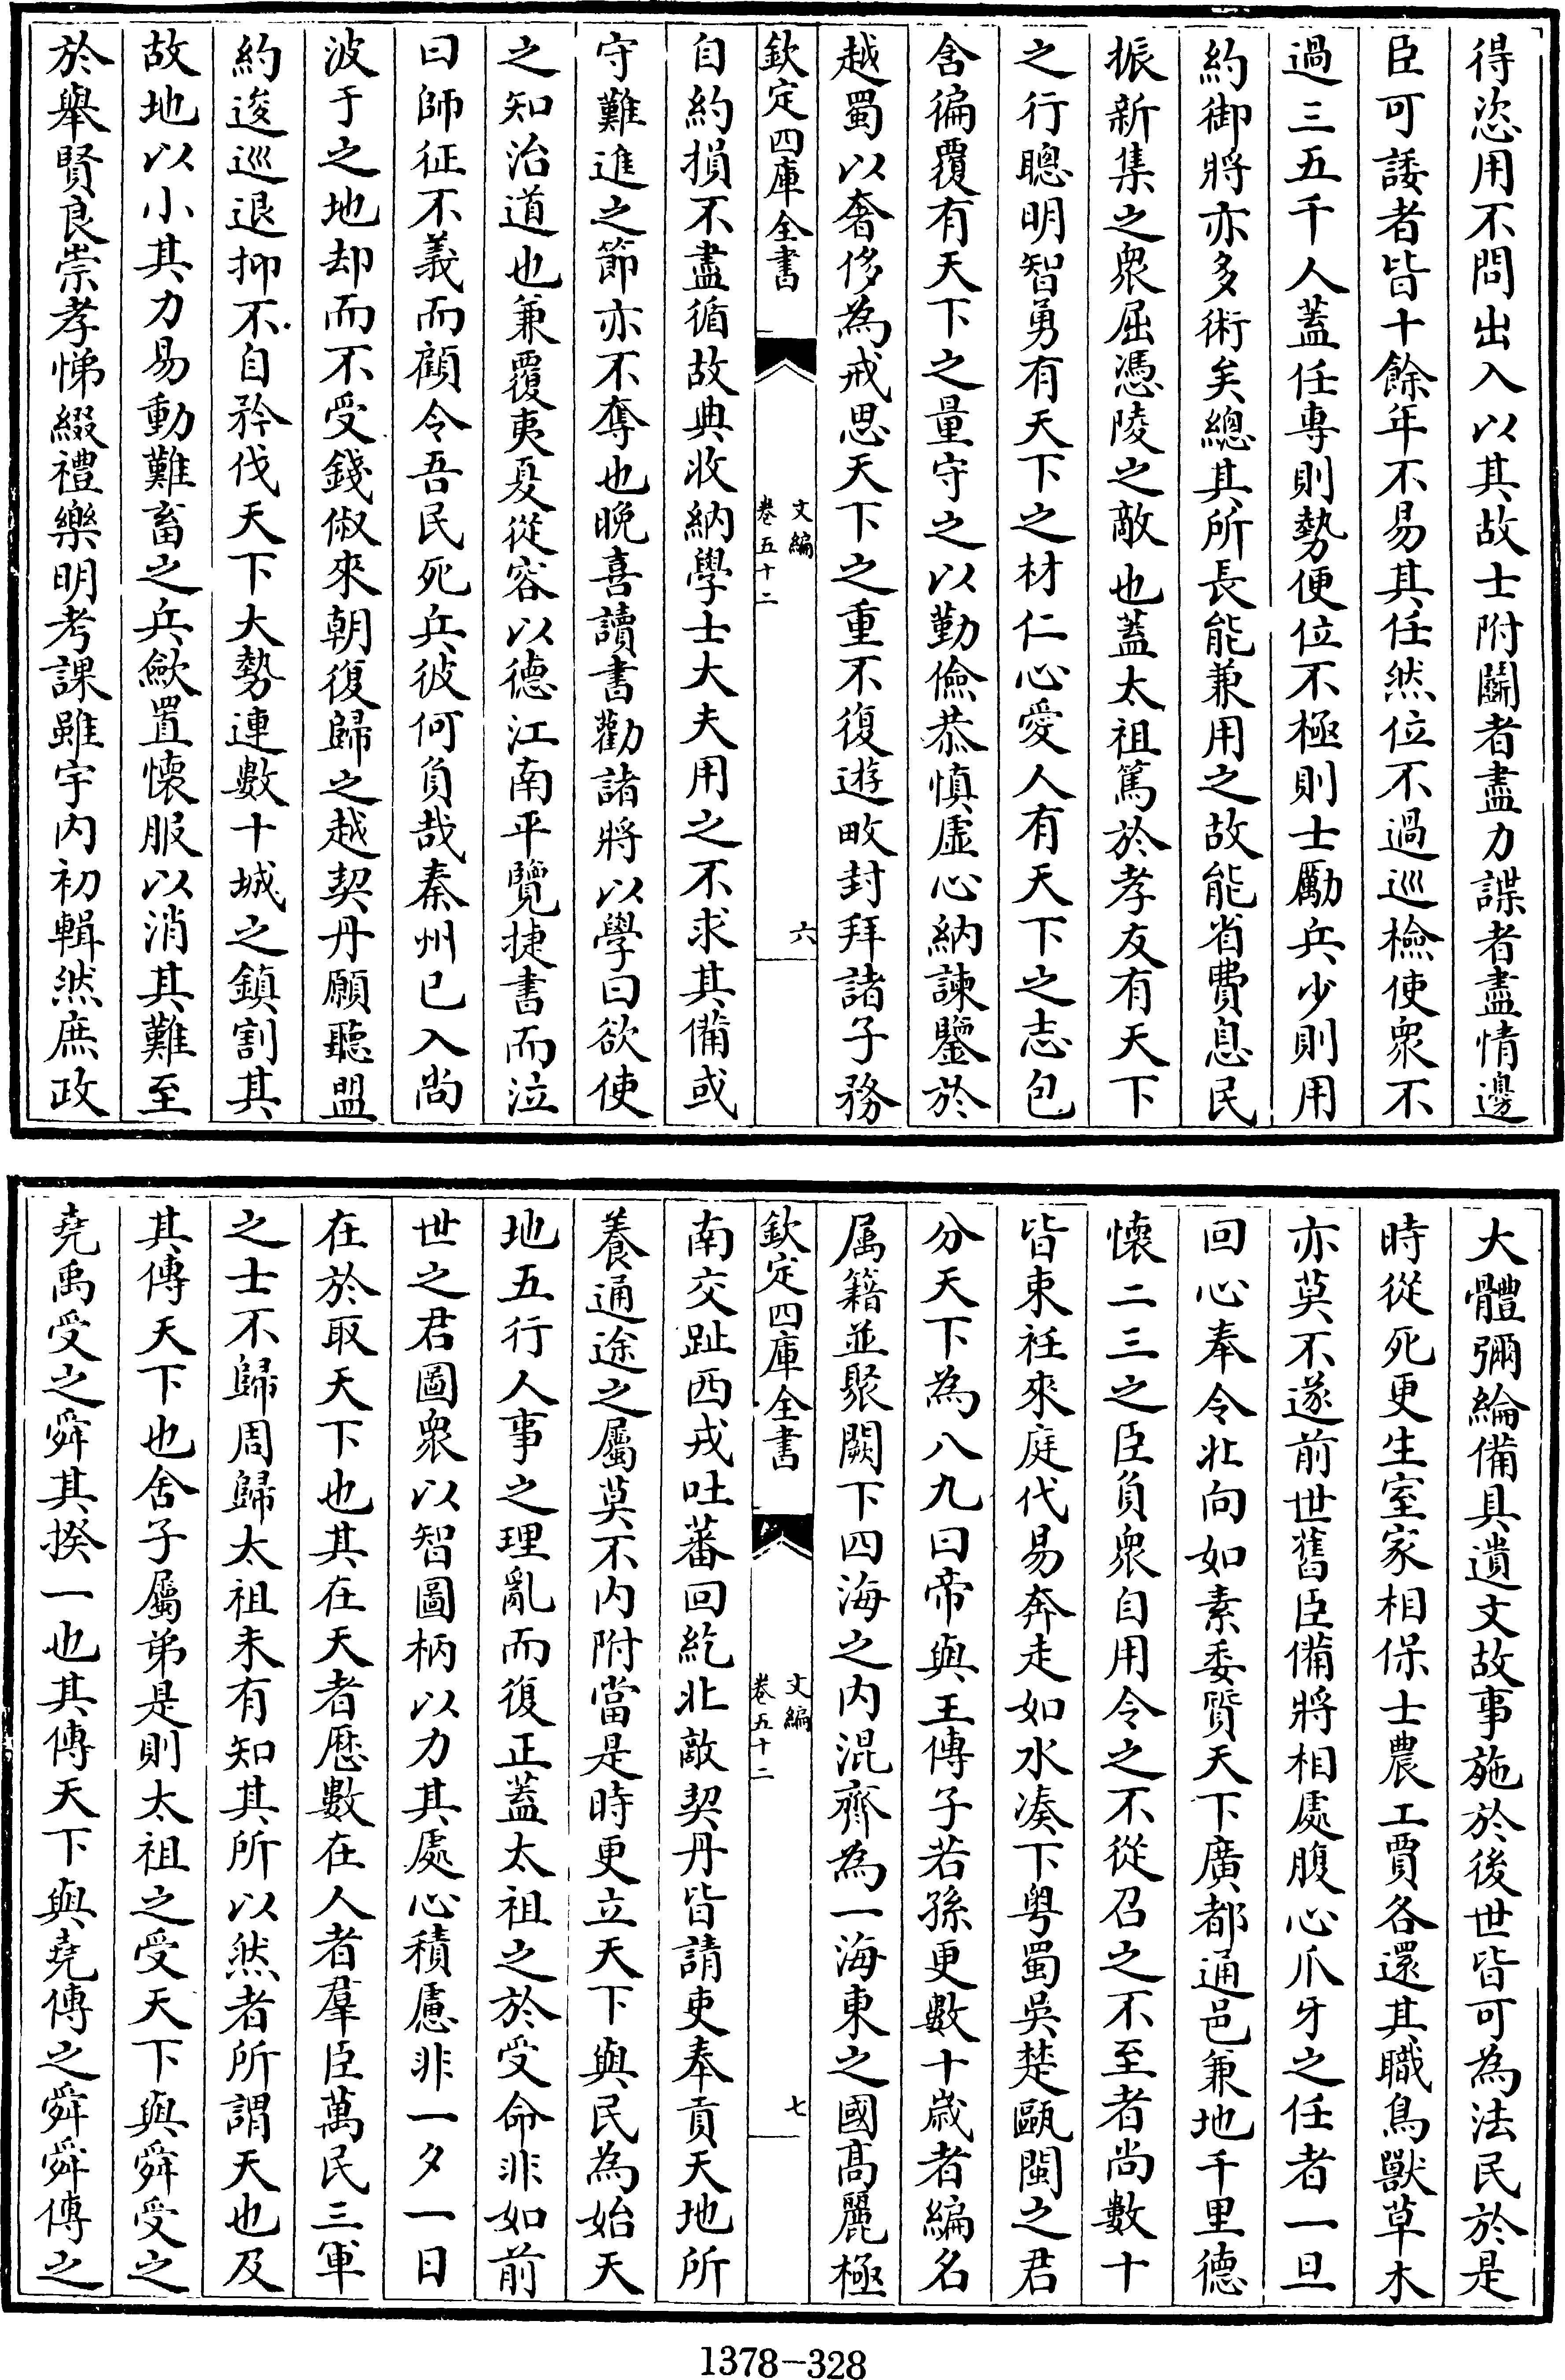 得恣用不問出入以其故士附鬭者盡力諜者盡情邊
臣可諉者皆十餘年不易其任然位不過巡檢使衆不
過三五千人蓋任專則勢便位不極則士勵兵少則用
約御將亦多術矣總其所長能兼用之故能省費息民
振新集之衆屈憑陵之敵也蓋太祖篤於孝友有天下
之行聰明智勇有天下之材仁心愛人有天下之志包
含徧覆有天下之量守之以勤儉恭慎虚心納諫鑒於
越蜀以奢侈為戒思天下之重不復遊畋封拜諸子務
欽定四庫全書
文編
卷五十二
六
自約損不盡循故典收納學士大夫用之不求其備或
守難進之節亦不奪也晚喜讀書勸諸將以學曰欲使
之知治道也兼覆夷夏從容以德江南平覽捷書而泣
曰師征不義而顧令吾民死兵彼何負哉秦州已入尚
波于之地却而不受錢俶來朝復歸之越契丹願聽盟
約逡巡退抑不自矜伐天下大勢連數十城之鎮割其
故地以小其力易動難畜之兵歛置懷服以消其難至
於舉賢良崇孝悌綴禮樂明考課雖宇内初輯然庶政
大體彌綸備具遺文故事施於後世皆可為法民於是
時從死更生室家相保士農工賈各還其職鳥獸草木
亦莫不遂前世舊臣備將相處腹心爪牙之任者一旦
回心奉令北向如素委質天下廣都通邑兼地千里德
懷二三之臣負衆自用令之不從召之不至者尚數十
皆束衽來庭代易奔走如水凑下粤蜀吳楚甌閩之君
分天下為八九曰帝與王傳子若孫更數十歲者編名
属籍並聚闕下四海之内混齊為一海東之國髙麗極
欽定四庫全書
文編
卷五十二
七
南交趾西戎吐蕃回紇北敵契丹皆請吏奉貢天地所
養通途之屬莫不内附當是時更立天下與民為始天
地五行人事之理亂而復正蓋太祖之於受命非如前
世之君圖衆以智圖柄以力其處心積慮非一夕一日
在於取天下也其在天者厯數在人者羣臣萬民三軍
之士不歸周歸太祖未有知其所以然者所謂天也及
其傳天下也舍子屬弟是則太祖之受天下與舜受之
堯禹受之舜其揆一也其傳天下與堯傳之舜舜傳之
1378-328